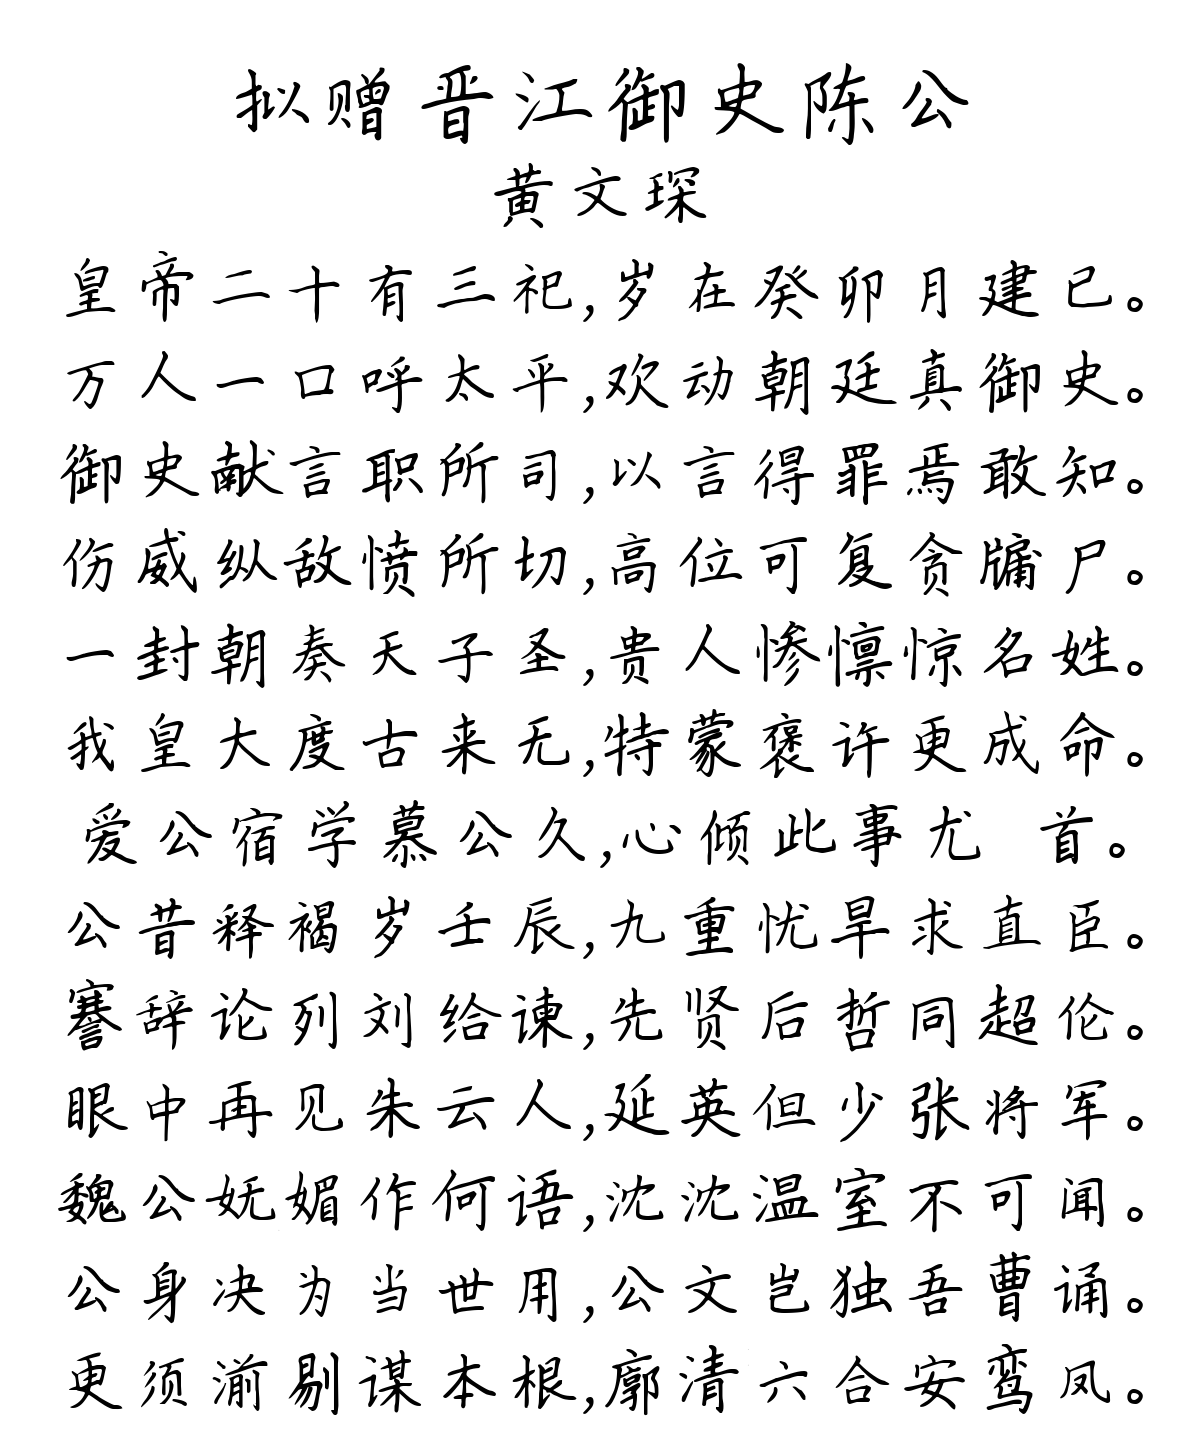 拟赠晋江御史陈公
黄文琛
皇帝二十有三祀,岁在癸卯月建已。
万人一口呼太平,欢动朝廷真御史。
御史献言职所司,以言得罪焉敢知。
伤威纵敌愤所切,高位可复贪牖尸。
一封朝奏天子圣,贵人惨懔惊名姓。
我皇大度古来无,特蒙褒许更成命。
爱公宿学慕公久,心倾此事尤 首。
公昔释褐岁壬辰,九重忧旱求直臣。
謇辞论列刘给谏,先贤后哲同超伦。
眼中再见朱云人,延英但少张将军。
魏公妩媚作何语,沈沈温室不可闻。
公身决为当世用,公文岂独吾曹诵。
更须湔剔谋本根,廓清六合安鸾凤。